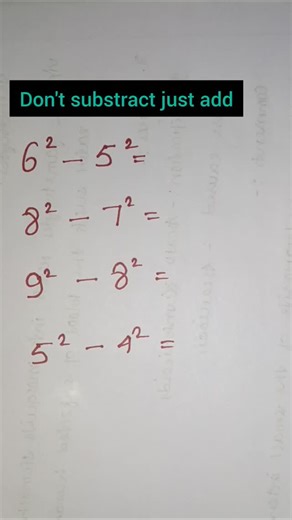 Don't substract just add
6² – 5² =
8² – 7² =
9² – 8² =
5² – 4² =